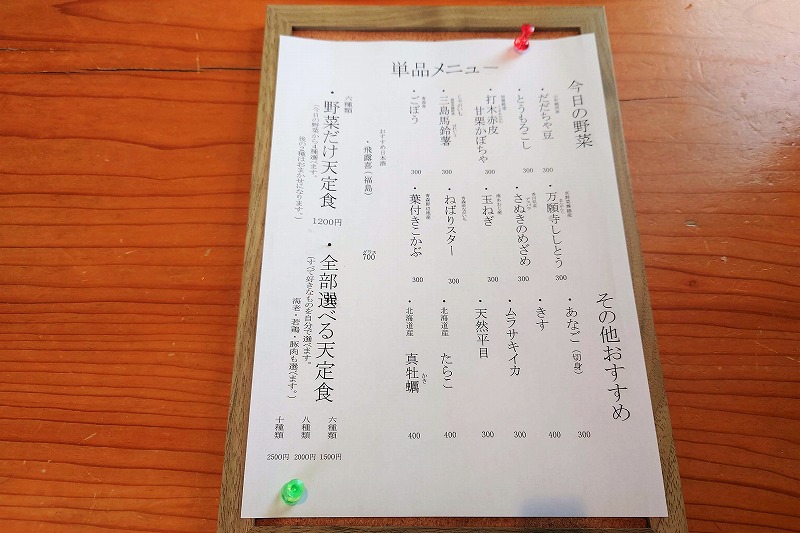 単品メニュー
今日の野菜
・だだちゃ豆 300
・とうもろこし 300
・打木赤皮
甘栗かぼちゃ 300
・三島馬鈴薯 300
・ごぼう 300
・万願寺ししとう 300
・さぬきのめざめ 300
・玉ねぎ 300
・ねばりスター 300
・葉付きこかぶ 300
その他おすすめ
・あなご(切身) 300
・きす 400
・ムラサキイカ 300
・天然平目 300
・北海道産 たらこ 400
・北海道産 真牡蠣 400
おすすめ日本酒
・飛露喜(福島) グラス700
六種類
・野菜だけ天定食 1200円
(今日の野菜から4種選べます。
後の2種はおまかせになります。)
・全部選べる天定食
(すべて好きなものを自分で選べます。
海老・若鶏・豚肉も選べます。)
六種類 1500円
八種類 2000円
十種類 2500円